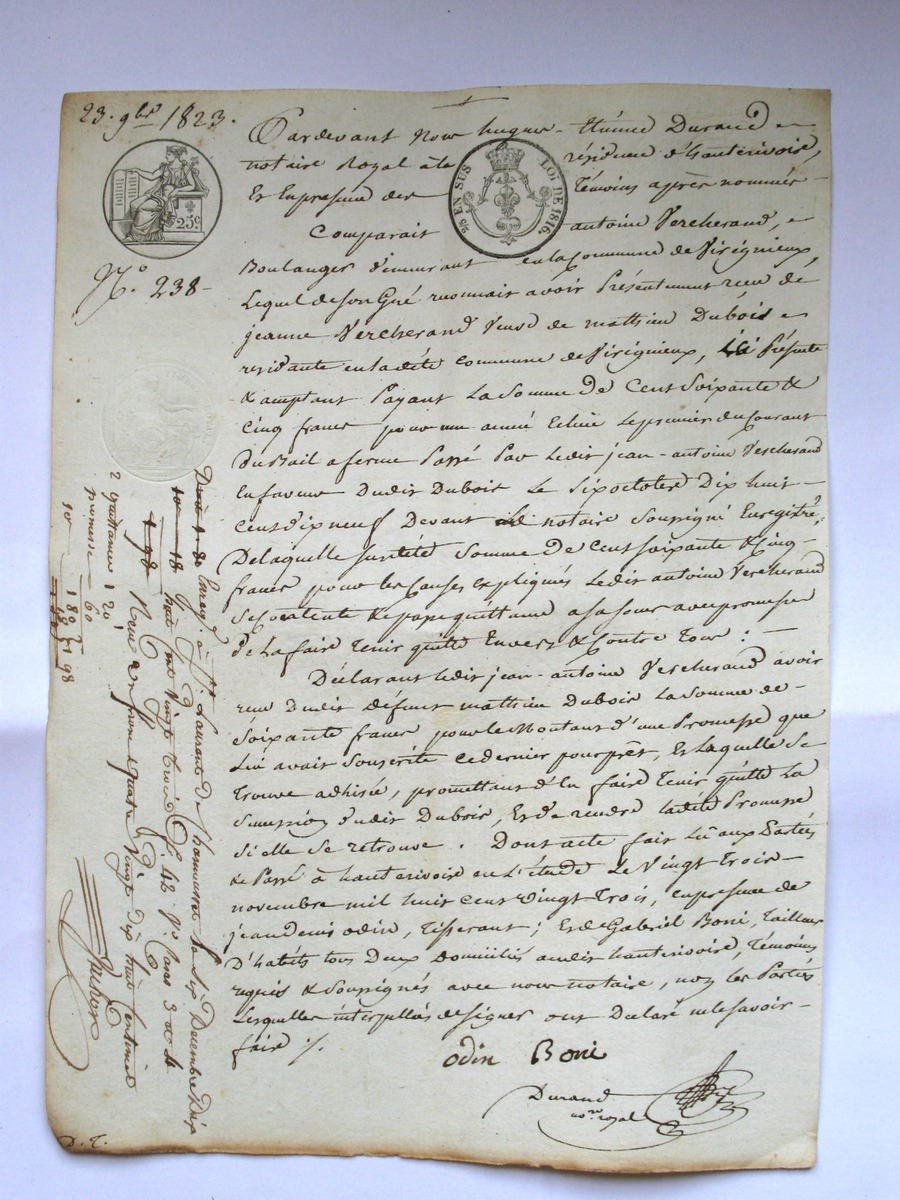 23. 9bre 1823.
25c.
N.o 238 -
25 EN SUS LOI DE 1816.
Pardevant Nous hugues - Etienne Durand
notaire Royal à la résidence d'hauterivoire,
Et En presence des témoins après nommés
Comparait antoine Vercherand,
Boulanger demeurant en la Commune de Virignieux,
Lequel de Son Gré reconnait avoir Présentement recu de
jeanne Vercherand Veuve de mathieu Dubois
residante en ladite Commune de Virignieux, ici Présente
& comptant Payant La Somme de Cent Soixante &
Cinq francs pour une année Echue le premier du Courant
Du Bail a ferme Passé Par Ledit jean - antoine Vercherand
En faveur Dudit Dubois Le Six octobre Dix huit -
Cent dix neuf Devant le notaire Soussigné Enregistré,
De laquelle susdite Somme de Cent soixante & Cinq -
francs pour les Causes Expliquées Ledit antoine Vercherand
Se Contente & passe quittance a sa Sœur avec promesse
de La faire Tenir quitte Envers & Contre Tous : -
Déclarant Ledit jean - antoine Vercherand avoir
recu Dudit défunt mathieu Dubois La Somme de -
Soixante francs pour le Montant d'une Promesse que
Lui avait Souscrite Ce dernier pour pret, Et Laquelle Se
Trouve adhirée, promettant d'En faire Tenir quitte La
Succession dudit Dubois, Et de rendre Ladite Promesse
Si elle Se retrouve. Dont acte fait Lu aux Parties
& Passé à hauterivoire En L'étude Le Vingt Trois -
novembre mil huit Cent Vingt Trois, En presence de
jean Denis odin, Tisserant; Et de Gabriel Boni, Tailleur
D'habits tous Deux Domiciliés audit hauterivoire, Témoins
requis & Soussignés avec nous notaire, non les Parties
Lesquelles interpellées de Signer ont Declaré ne le savoir -
faire ./.
odin Boni
Durand
no.re royal
Enreg. à St. Laurent de Chamousset Le Six Decembre Dix
huit cent Vingt Trois f. 42 Vo. Cases 3 & 4
Recu un franc quatre Vingt dix huit Centimes
2 quittances 1 20
promesse 60
1 80
18
1 98
D. T.